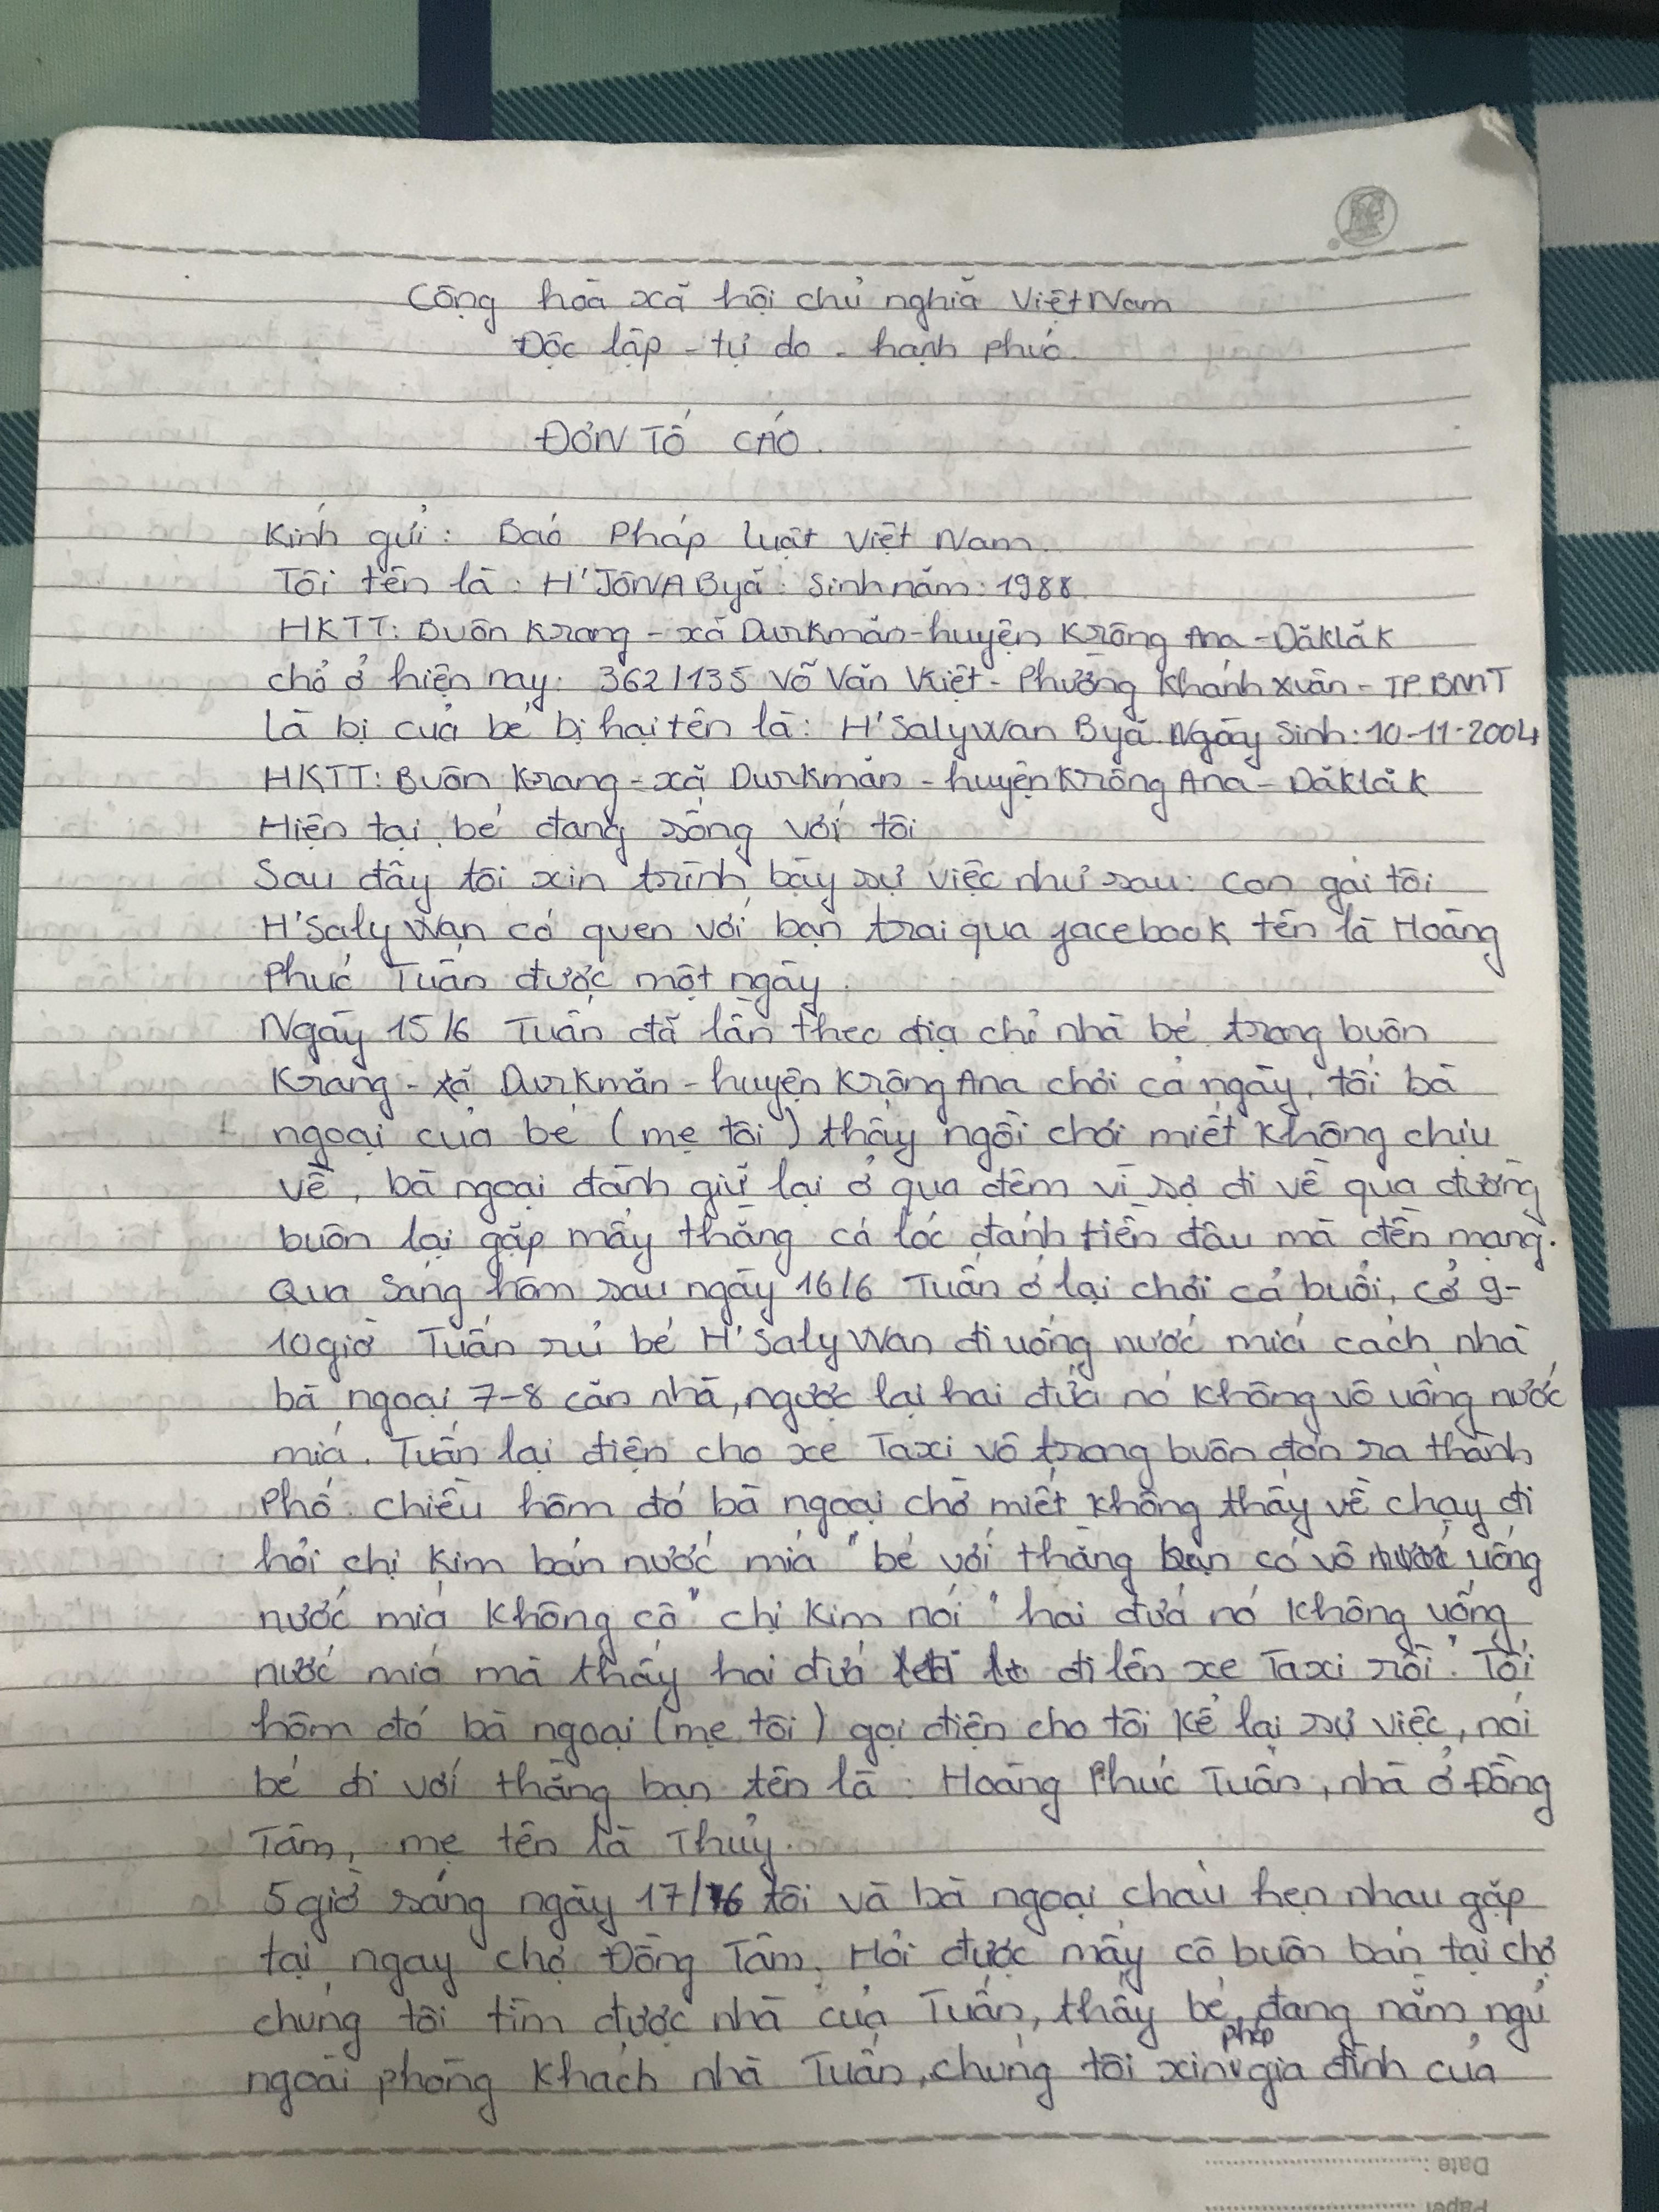 Cộng hoà xã hội chủ nghĩa Việt Nam
Độc lập - tự do - hạnh phúc.
ĐƠN TỐ CÁO.
Kính gửi: Báo Pháp luật Việt Nam.
Tôi tên là: H'JÔNA Byă. Sinh năm: 1988.
HKTT: Buôn Krang - xã Durkmăn - huyện Krông Ana - Đăklăk
chổ ở hiện nay: 362/135 Võ Văn Kiệt - Phường Khánh Xuân - TP BMT
Là bị của bé bị hại tên là: H'SalyWan Byă. Ngày Sinh: 10-11-2004
HKTT: Buôn Krang - xã Durkmăn - huyện Krông Ana - Đăklăk
Hiện tại bé đang sống với tôi
Sau đây tôi xin trình bày sự việc như sau: con gái tôi
H'Saly Wan có quen với bạn trai qua facebook tên là Hoàng
Phúc Tuấn được một ngày.
Ngày 15/6 Tuấn đã lần theo địa chỉ nhà bé trong buôn
Krang - xã Durkmăn - huyện Krông Ana chơi cả ngày, tối bà
ngoại của bé (mẹ tôi) thấy ngồi chơi miết không chịu
về, bà ngoại đành giữ lại ở qua đêm vì sợ đi về qua đường
buôn lại gặp mấy thằng cá lóc đánh tiền đâu mà đền mạng.
Qua Sáng hôm sau ngày 16/6 Tuấn ở lại chơi cả buổi, cở 9-
10giờ Tuấn rủ bé H'Saly Wan đi uống nước miá cách nhà
bà ngoại 7-8 căn nhà, ngược lại hai đứa nó không vô uống nước
miá. Tuấn lại điện cho xe Taxi vô trong buôn đón ra thành
Phố. chiều hôm đó bà ngoại chờ miết không thấy về chạy đi
hỏi chị Kim bán nước miá "bé với thằng bạn có vô uống
nước miá không cô" chị Kim nói "hai đứa nó không uống
nước miá mà thấy hai đứa đi lên xe Taxi rồi". Tối
hôm đó bà ngoại (mẹ tôi) gọi điện cho tôi kể lại sự việc, nói
bé đi với thằng bạn tên là: Hoàng Phúc Tuấn, nhà ở Đồng
Tâm, mẹ tên là Thuỷ.
5giờ sáng ngày 17/6 tôi và bà ngoại cháu hẹn nhau gặp
tại ngay chợ Đồng Tâm. Hỏi được mấy cô buôn bán tại chợ
chúng tôi tìm được nhà của Tuấn, thấy bé đang nằm ngủ
ngoài phòng khách nhà Tuấn, chúng tôi xin phép gia đình của
Date :
Paper